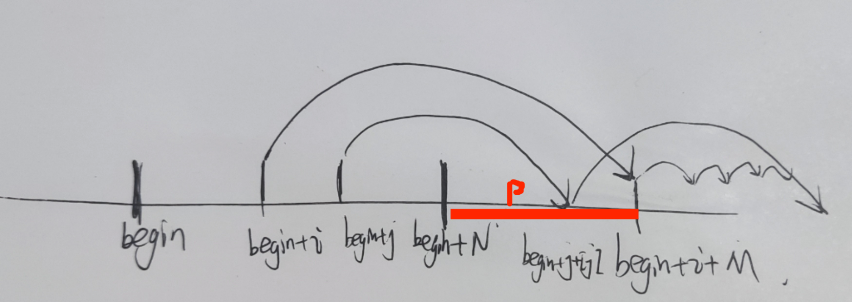 P
begin
begin+i
begin+j
begin+N
begin+j+[j]
begin+i+M